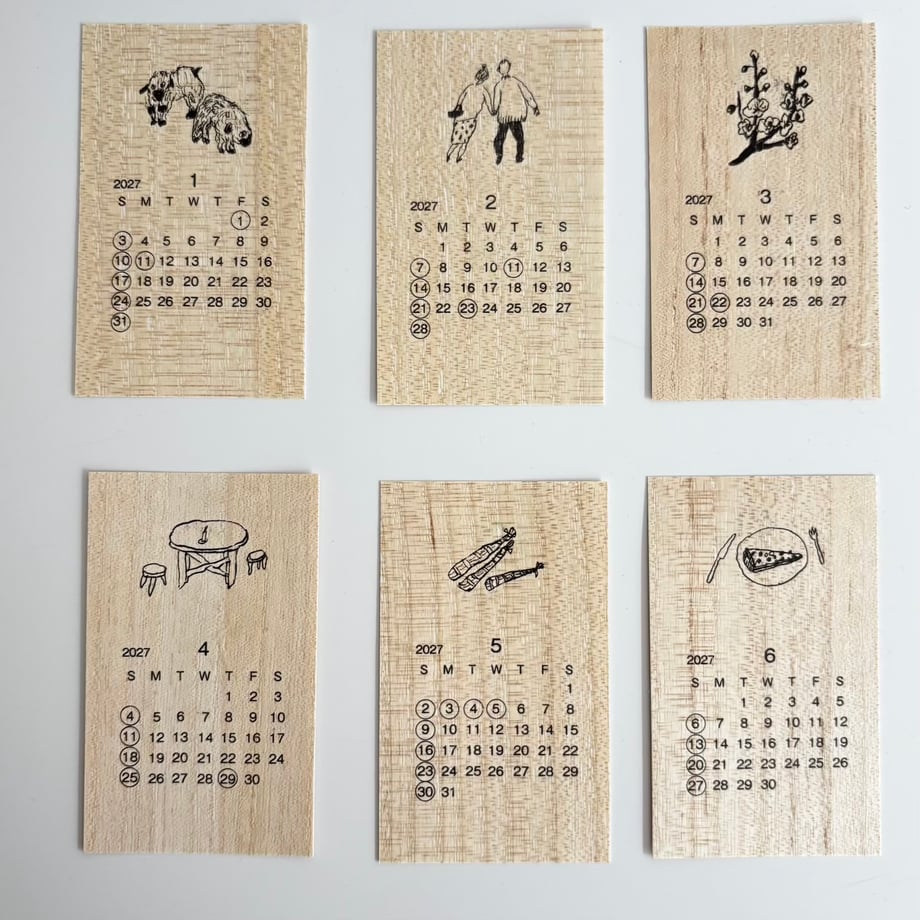 2027 1
S M T W T F S
1 2
3 4 5 6 7 8 9
10 11 12 13 14 15 16
17 18 19 20 21 22 23
24 25 26 27 28 29 30
31
2027 2
S M T W T F S
1 2 3 4 5 6
7 8 9 10 11 12 13
14 15 16 17 18 19 20
21 22 23 24 25 26 27
28
2027 3
S M T W T F S
1 2 3 4 5 6
7 8 9 10 11 12 13
14 15 16 17 18 19 20
21 22 23 24 25 26 27
28 29 30 31
2027 4
S M T W T F S
1 2 3
4 5 6 7 8 9 10
11 12 13 14 15 16 17
18 19 20 21 22 23 24
25 26 27 28 29 30
2027 5
S M T W T F S
1
2 3 4 5 6 7 8
9 10 11 12 13 14 15
16 17 18 19 20 21 22
23 24 25 26 27 28 29
30 31
2027 6
S M T W T F S
1 2 3 4 5
6 7 8 9 10 11 12
13 14 15 16 17 18 19
20 21 22 23 24 25 26
27 28 29 30